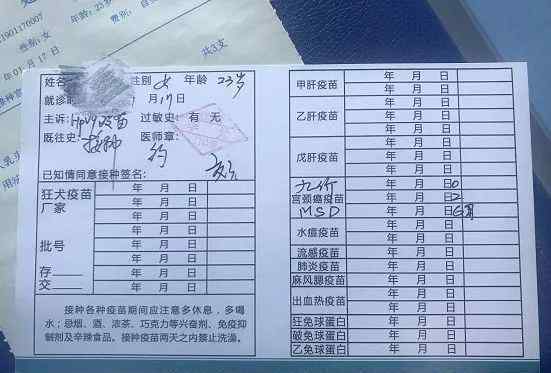 1901170007
年龄：23岁
性别：女
年01月17日
共3支
姓名 性别 女 年龄 23岁
就诊时 月17日
主诉：Hpv9疫苗 过敏史：有 无
接种
既往史： 医师章：
约
已知情同意接种签名：
狂犬疫苗 年 月 日
厂家 年 月 日
年 月 日
年 月 日
批号 年 月 日
年 月 日
存 年 月 日
交 年 月 日
接种各种疫苗期间应注意多休息，多喝
水；忌烟、酒、浓茶、巧克力等兴奋剂、免疫抑
制剂及辛辣食品。接种疫苗两天之内禁止洗澡。
甲肝疫苗 年 月 日
年 月 日
乙肝疫苗 年 月 日
年 月 日
年 月 日
戊肝疫苗 年 月 日
年 月 日
九价 年 月 日 0
宫颈癌疫苗 年 月 日 2
MSD 年 月 日 6月
水痘疫苗 年 月 日
年 月 日
流感疫苗 年 月 日
肺炎疫苗 年 月 日
麻风腮疫苗 年 月 日
出血热疫苗 年 月 日
年 月 日
狂免球蛋白 年 月 日
破免球蛋白 年 月 日
乙免球蛋白 年 月 日